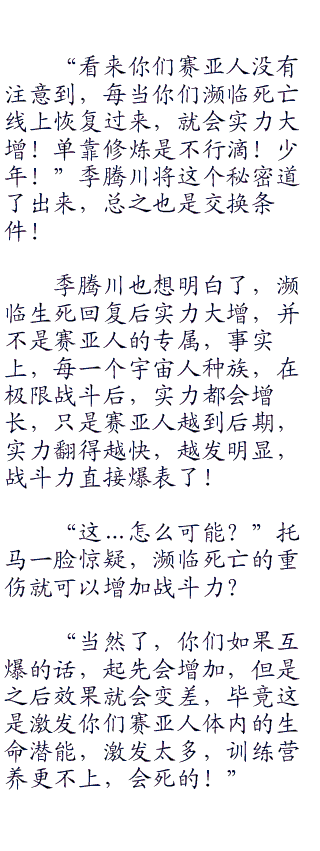 “看来你们赛亚人没有
注意到，每当你们濒临死亡
线上恢复过来，就会实力大
增！单靠修炼是不行滴！少
年！”季腾川将这个秘密道
了出来，总之也是交换条
件！
季腾川也想明白了，濒
临生死回复后实力大增，并
不是赛亚人的专属，事实
上，每一个宇宙人种族，在
极限战斗后，实力都会增
长，只是赛亚人越到后期，
实力翻得越快，越发明显，
战斗力直接爆表了！
“这…怎么可能？”托
马一脸惊疑，濒临死亡的重
伤就可以增加战斗力？
“当然了，你们如果互
爆的话，起先会增加，但是
之后效果就会变差，毕竟这
是激发你们赛亚人体内的生
命潜能，激发太多，训练营
养更不上，会死的！”